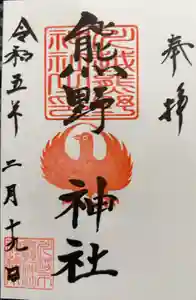 奉拝
熊野神社
令和五年二月十九日